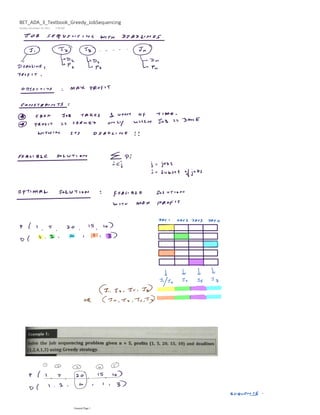 BET_ADA_3_Textbook_Greedy_JobSequencing
JOB SEQUENCING WITH DEADLINES
J1 J2 J3 Jn
DEADLINE, D2 D3 Dn
PROFIT. P2 P3 Pn
OBJECTIVE : MAX PROFIT
CONSTRAINTS :
EACH JOB TAKES 1 UNIT OF TIME.
PROFIT IS EARNED ONLY WHEN JOB IS DONE
WITHIN ITS DEADLINE !!
FEASIBLE SOLUTION Σ Pi
i∈j j = jobs
i = subset of jobs
OPTIMAL SOLUTION : FEASIBLE SOLUTION
WITH MAX PROFIT
DAY1 DAY2 DAY3 DAY4
P ( 1, 5, 20, 15, 10)
D (
OR
Example 1:
Solve the job sequencing problem given n = 5, profits (1, 5, 20, 15, 10) and deadlines
(1,2,4,1,3) using Greedy strategy.
P ( 1 5 20 15 10)
D ( 1, 2, 4, 1, 3)
SEQUENCES -